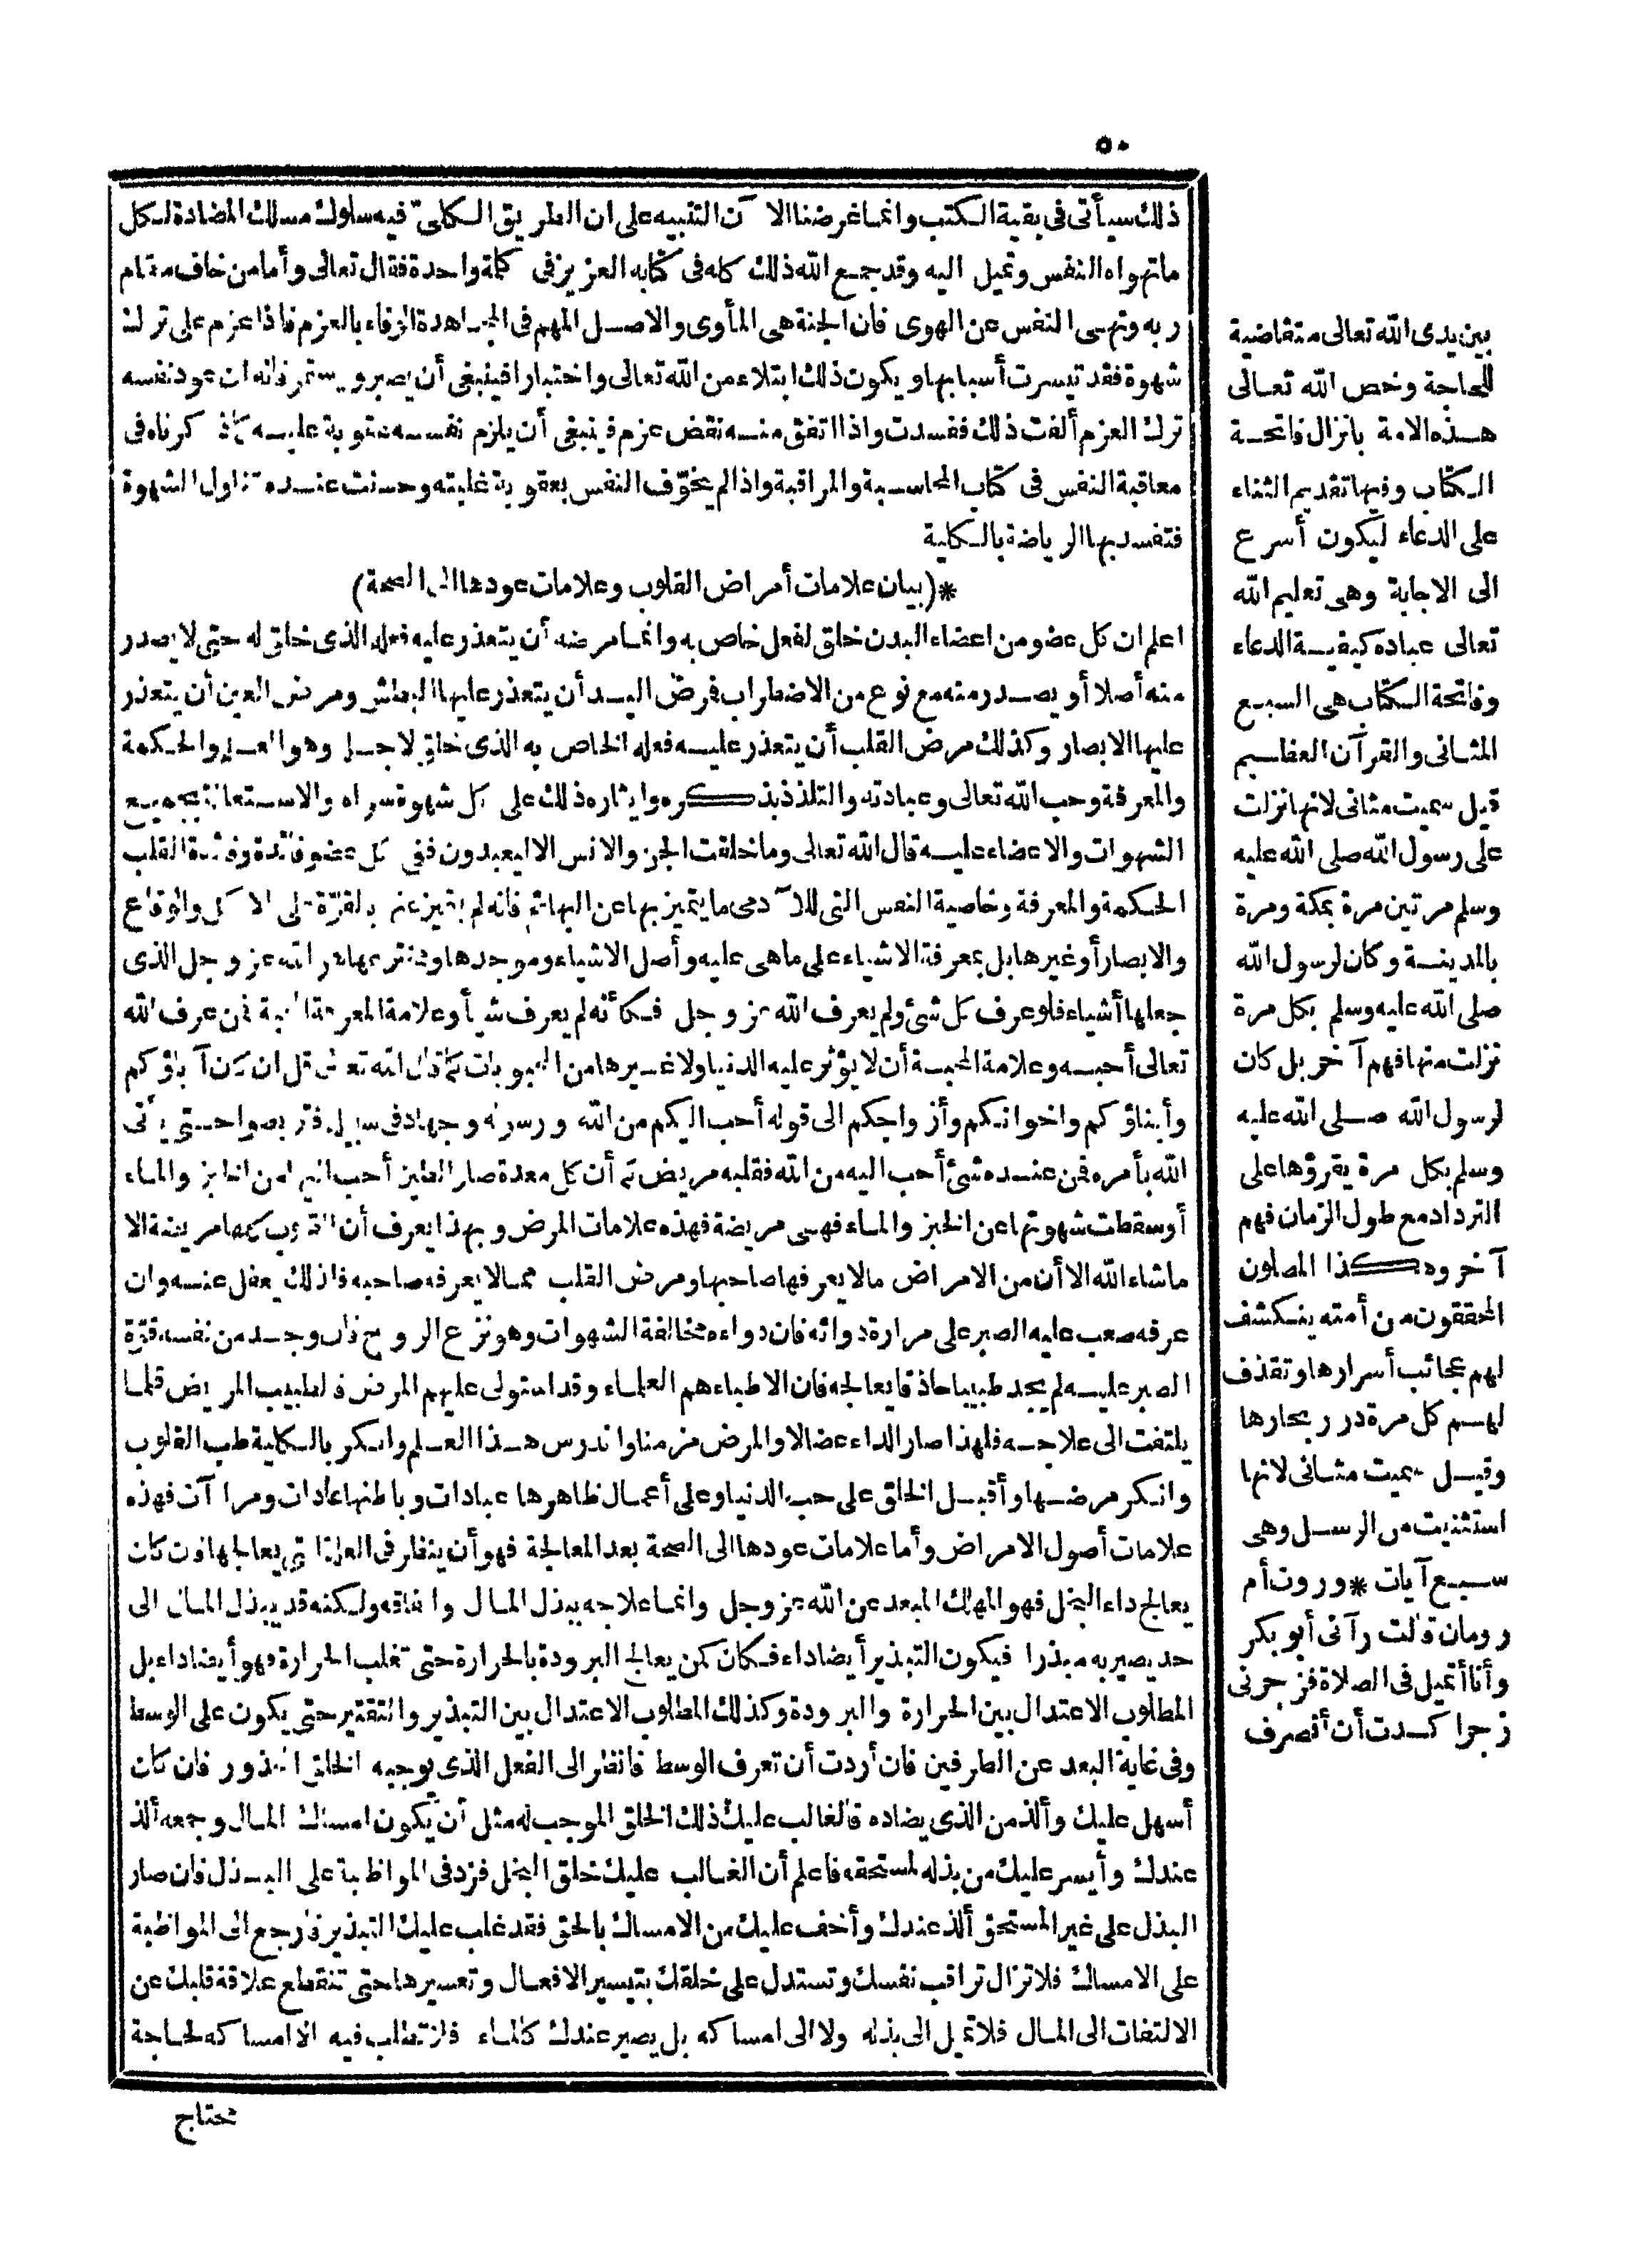 ٥٠
ذلك سيأتى فى بقية الكتب وانما غرضنا الآن التنبيه على ان الطريق الكلىّ فيه سلوك مسلك المضادة لكل
ماتهواه النفس وتميل اليه وقد جمع الله ذلك كله فى كتابه العزيز فى كلمة واحدة فقال تعالى وأما من خاف مقام
ربه ونهى النفس عن الهوى فان الجنة هى المأوى والاصل المهم فى المجاهدة الوفاء بالعزم فاذا عزم على ترك
شهوة فقد تيسرت أسبابها ويكون ذلك ابتلاء من الله تعالى واختبارا فينبغى أن يصبر ويستمر فانه ان عود نفسه
ترك العزم ألفت ذلك ففسدت واذا اتفق منه نقض عزم فينبغى أن يلزم نفسه عقوبة عليه كما ذكرناه فى
معاقبة النفس فى كتاب المحاسبة والمراقبة واذا لم يخوّف النفس بعقوبة غلبته وحسنت عنده تناول الشهوة
فتفسد بها الرياضة بالكلية
*(بيان علامات أمراض القلوب وعلامات عودها الى الصحة)
اعلم ان كل عضو من اعضاء البدن خلق لفعل خاص به وانما مرضه أن يتعذر عليه فعله الذى خلق له حتى لا يصدر
منه أصلا أو يصدر منه مع نوع من الاضطراب فرض اليد أن يتعذر عليها البطش ومرض العين أن يتعذر
عليها الابصار وكذلك مرض القلب أن يتعذر عليه فعله الخاص به الذى خلق لاجله وهو العلم والحكمة
والمعرفة وحب الله تعالى وعبادته والتلذذ بذكره وايثاره ذلك على كل شهوة سواه والاستعانة بجميع
الشهوات والاعضاء عليه قال الله تعالى وما خلقت الجن والانس الا ليعبدون ففى كل عضو فائدة وفائدة القلب
الحكمة والمعرفة وخاصية النفس التى للآدمى ما يتميز بها عن البهائم فانه لم يتميز عنها بالقوّة على الاكل والوقاع
والابصار أو غيرها بل بمعرفة الاشياء على ماهى عليه وأصل الاشياء وموجدها ومخترعها هو الله عز وجل الذى
جعلها أشياء فلو عرف كل شئ ولم يعرف الله عز وجل فكأنه لم يعرف شيأ وعلامة المعرفة المحبة فمن عرف الله
تعالى أحبه وعلامة المحبة أن لا يؤثر عليه الدنيا ولا غيرها من المحبوبات كما قال الله تعالى قل ان كان آباؤكم
وأبناؤكم واخوانكم وأزواجكم الى قوله أحب اليكم من الله ورسوله وجهاد فى سبيله فتربصوا حتى يأتى
الله بأمره فمن عنده شئ أحب اليه من الله فقلبه مريض كما أن كل معدة صار الطين أحب اليها من الخبز والماء
أو سقطت شهوتها عن الخبز والماء فهى مريضة فهذه علامات المرض وبهذا يعرف أن القلوب كلها مريضة الا
ماشاء الله الا أن من الامراض مالا يعرفها صاحبها ومرض القلب مما لا يعرفه صاحبه فلذلك يغفل عنه وان
عرفه صعب عليه الصبر على مرارة دوائه فان دواءه مخالفة الشهوات وهو نزع الروح فان وجد من نفسه قوّة
الصبر عليه لم يجد طبيبا حاذقا يعالجه فان الاطباء هم العلماء وقد استولى عليهم المرض فالطبيب المريض قلما
يلتفت الى علاجه فلهذا صار الداء عضالا والمرض مزمنا واندرس هذا العلم وانكر بالكلية طب القلوب
وانكر مرضها وأقبل الخلق على حب الدنيا وعلى أعمال ظاهرها عبادات وباطنها عادات ومرا آت فهذه
علامات أصول الامراض وأما علامات عودها الى الصحة بعد المعالجة فهو أن ينظر فى العلة التى يعالجها فان كان
يعالج داء البخل فهو المهلك المبعد عن الله عز وجل وانما علاجه ببذل المال وانفاقه ولكنه قد يبذل المال الى
حد يصير به مبذرا فيكون التبذير أيضا داء فكان كمن يعالج البرودة بالحرارة حتى تغلب الحرارة فهو أيضا داء بل
المطلوب الاعتدال بين الحرارة والبرودة وكذلك المطلوب الاعتدال بين التبذير والتقتير حتى يكون على الوسط
وفى غاية البعد عن الطرفين فان أردت أن تعرف الوسط فانظر الى الفعل الذى يوجبه الخلق المحذور فان كان
أسهل عليك وألذ من الذى يضاده فالغالب عليك ذلك الخلق الموجب له مثل أن يكون امساك المال وجمعه ألذ
عندك وأيسر عليك من بذله لمستحقه فاعلم أن الغالب عليك خلق البخل فزد فى المواظبة على البذل فان صار
البذل على غير المستحق ألذ عندك وأخف عليك من الامساك بالحق فقد غلب عليك التبذير فارجع الى المواظبة
على الامساك فلا تزال تراقب نفسك وتستدل على خلقك بتيسير الافعال وتعسيرها حتى تنقطع علاقة قلبك عن
الالتفات الى المال فلا تميل الى بذله ولا الى امساكه بل يصير عندك كالماء فلا تطلب فيه الا امساكه لحاجة
محتاج
بين يدى الله تعالى متقاضية
للحاجة وخص الله تعالى
هذه الامة بانزال فاتحة
الكتاب وفيها تقديم الثناء
على الدعاء ليكون أسرع
الى الاجابة وهى تعليم الله
تعالى عباده كيفية الدعاء
وفاتحة الكتاب هى السبع
المثانى والقرآن العظيم
قيل سميت مثانى لانها نزلت
على رسول الله صلى الله عليه
وسلم مرتين مرة بمكة ومرة
بالمدينة وكان لرسول الله
صلى الله عليه وسلم بكل مرة
نزلت منها فهم آخر بل كان
لرسول الله صلى الله عليه
وسلم بكل مرة يقرؤها على
الترداد مع طول الزمان فهم
آخر وهكذا المصلون
المحققون من أمته ينكشف
لهم عجائب أسرارها وتقذف
لهم كل مرة درر بحارها
وقيل سميت مثانى لانها
استثنيت من الرسل وهى
سبع آيات * وروت أم
رومان قالت رآنى أبو بكر
وأنا أتميل فى الصلاة فزجرنى
زجرا كدت أن أنصرف